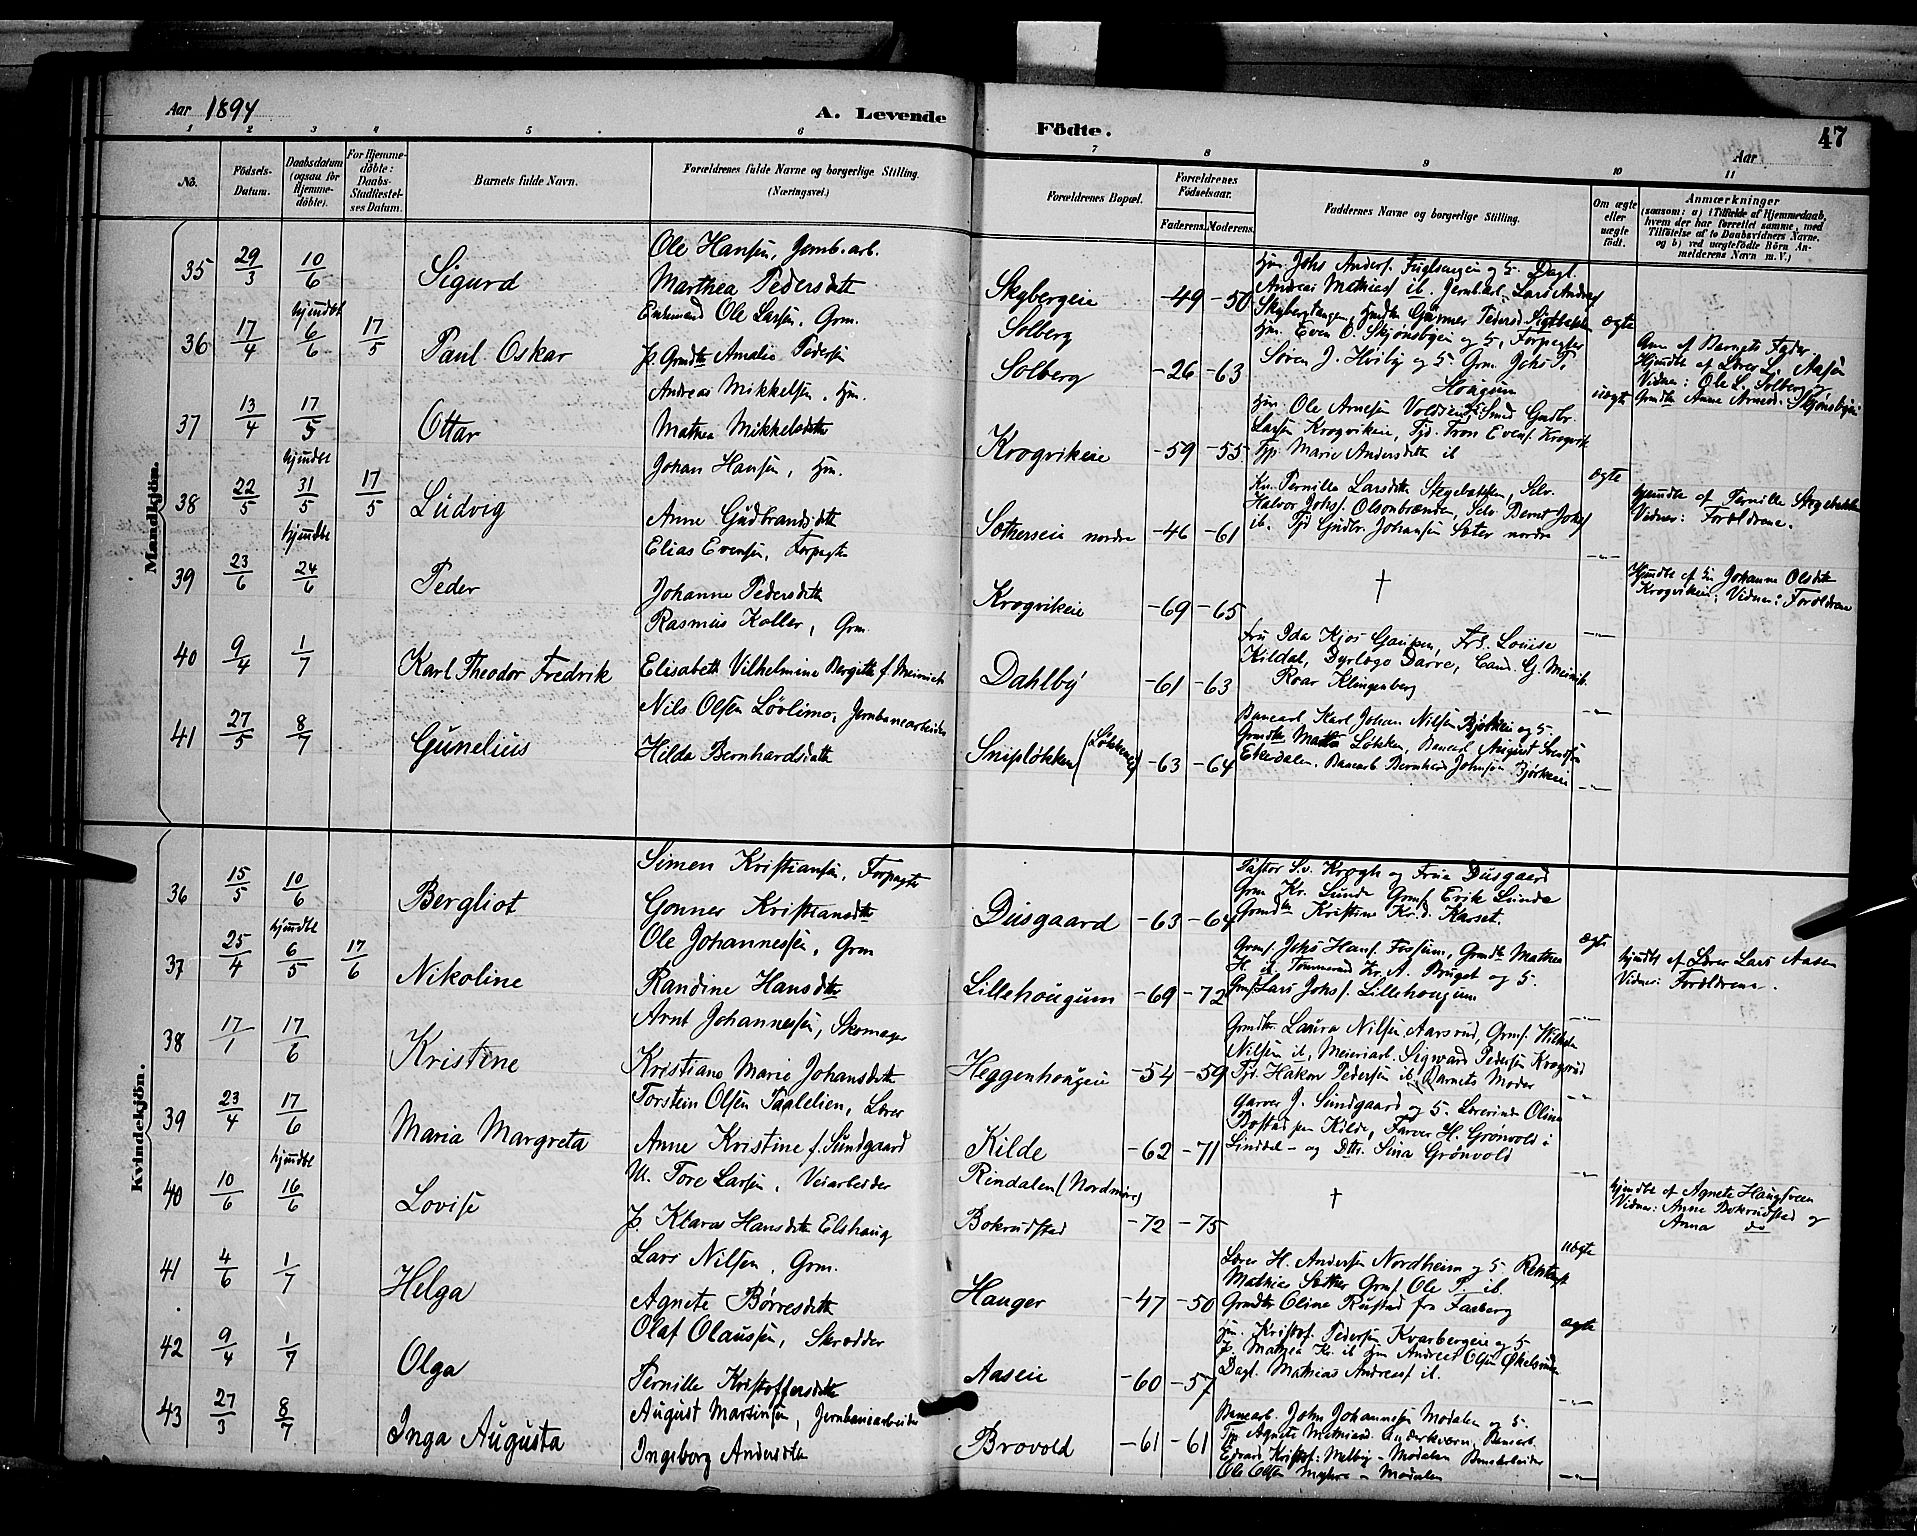 Aar 1894
A. Levende
Födte.
Aar
47
1 2 3 4 5 6 7 8 9 10 11
No.
Födsels-Datum.
Daabsdatum (ogsaa for Hjemme-döbte).
For Hjemme-döbte: Daabs-Stadfæstel-ses Datum.
Barnets fulde Navn.
Forældrenes fulde Navne og borgerlige Stilling. (Næringsvei.)
Forældrenes Bopæl.
Forældrenes Födselsaar.
Faderens. Moderens.
Faddernes Navne og borgerlige Stilling.
Om ægte eller uægte födt.
Anmærkninger (saasom: a) i Tilfælde af Hjemmedaab, hvem der har forrettet samme, med Tilföielse af to Daabsvidners Navne, og b) ved uægtefödte Börn An-melderens Navn m. V.)
Mandkjön.
35 29/3 10/6 Sigurd
Ole Hansen, Jernb.arb.
Marthea Pedersdtt
Skybergeie -49 -50
Hm. Johs Anders. Fuglsangen og H. Dagl.
Andreas Mathiass ib. Jernb.arb. Lars Andrs
ægte
36 17/4 hjemdbt 6/6 17/5 Paul Oskar
Enkemand Ole Larsen, Grm.
P. Grmdtr Amalie Pedersen
Solberg
Solberg -26 -63
Hm. Even O. Skjønsbyen og H, Forpagter
Søren J. Hviby og H. Grm. Johs P.
Hougum
uægte
Anm af Barnets Fader
Hjmdbt af Lærer L. Aasen
Vidner: Ole L. Solberg og
Grmdtr Anne Arnesd. Skjønsbyen
37 13/4 17/5 Ottar
Andreas Mikkelsen, Hm.
Mathea Mikkelsdtt
Krogvikeie -59 -55
Hm. Ole Arnesen Voldeneie Smed Gudbr.
Larsen Krogvikeie, Tjd. Tron Evens. Krogvik
Tjp. Marie Andersdtt ib
ægte
38 22/5 hjemdbt 31/5 17/5 Ludvig
Johan Hansen, Hm.
Anne Gudbrandsdtt
Sætherseie nordre -46 -61
Kn. Pernille Larsdtt Stegebakken, Selv.
Halvor Johs. Olsonbrænden, Selv. Bernt Johs
ib. Tjd Gudbr. Johansen Sæter nordre
-"-
Hjemdbt af Pernille Stegebakken
Vidner: Forældrene.
39 23/6 hjemdbt 24/6 Peder
Elias Evensen, Forpagter
Johanne Pedersdtt
Krogvikeie -69 -65
†
-"-
Hjmdbt af Johanne Olsdtt
Krogvikeie; Vidner: Forældrene
40 9/4 1/7 Karl Theodor Fredrik
Rasmus Koller, Grm.
Elisabeth Vilhelmine Bergitte f. Meinich
Dahlby -61 -63
Fru Ida Kjos Gaupen, Frk. Louise
Kildal, Dyrlæge Darre, Cand. G. Meinich
Roar Klingenberg
-"-
41 27/5 8/7 Gunelius
Nils Olsen Løvlimo, Jernbanearbeider
Hilda Bernhardsdtt
Snipløkken (Løkkeneie) -63 -64
Banearb Karl Johan Nilsen Bjørkeie og H.
Grmdtr Løkken, Banearb August Svendsen
Ekerdalen. Banearb Bernhard Johnsen Bjørkeeie
-"-
Kvindekjön.
36 15/5 10/6 Bergliot
Simen Kristiansen, Forpagter
Gonner Kristiansdtt
Diisgaard -63 -64
Pastor S. v. Krogh og Frue Diisgaard
Grm Kr. Lunde Grms Erik Lunde
Grmdtr Kristine Kr.d. Karset.
ægte
37 25/4 hjemdbt 6/5 17/6 Nikoline
Ole Johannessen, Grm
Randine Hansdtr
Lillehougum -69 -72
Grms. Johs Hans. Fossum, Grmdtr Mathea
H. ib Tømmermd Kr. A. Bruget og H.
Grms Lars Johs. Lillehougum
-"-
Hjemdbt af Lærer Lars Aasen
Vidner: Forældrene.
38 17/1 17/6 Kristine
Arnt Johannessen, Skomager
Kristiane Marie Johansdtt
Heggenhougeie -54 -59
Grmdtr. Laura Nilsen Aarsrud, Grms. Wilhelm
Nilsen ib, Meieriarb. Sigward Pedersen Krogsrud
Tjd. Hakon Pedersen ib, Barnets Moder
-"-
39 23/4 17/6 Maria Margreta
Torstein Olsen Paalelien, Lærer
Anne Kristine f. Sundgaard
Kilde -62 -71
Garver J. Sundgaard og H. Lærerinde Oline
Bostad pen Kilde, Farver H. Grønvold i
Linddal - og Dtr. Sina Grønvold
-"-
40 10/6 hjemdbt 16/6 Lovise
U. Tore Larsen, Veiarbeider
P. Klara Hansdtr Elshaug
Rindalen (Nordmøre)
Bokrudstad -72 -75
†
uægte
Hjemdbt af Agnete Haugsveen
Vidner: Anne Bokrudstad og
Anna do
41 4/6 1/7 Helga
Lars Nilsen, Grm.
Agnete Børresdtt
Hauger -47 -50
Lærer H. Andersen Nordheim og H.
Mathias Sæther Grms Ole P. ib.
Grmdtr Oline Rustad fra Faaberg
ægte
42 9/4 1/7 Olga
Olaf Olaussen, Skrædder
Pernille Kristoffersdtt
Aaseie -60 -57
Hm. Kristof. Pedersen Kvarbergeie og H
P. Mathea Kr. ib Hm Andreas Olsen Økelsrud
Dagl. Mathias Andreass ib.
-"-
43 27/3 8/7 Inga Augusta
August Martinsen, Jernbanearbeider
Ingeborg Andersdtr
Brovold -61 -61
Banearb. John Johannesen Modalen og H.
Edvard Kristof. Melby - Modalen Banearbeider
Ole Olsen Myhre - Modalen
-"-